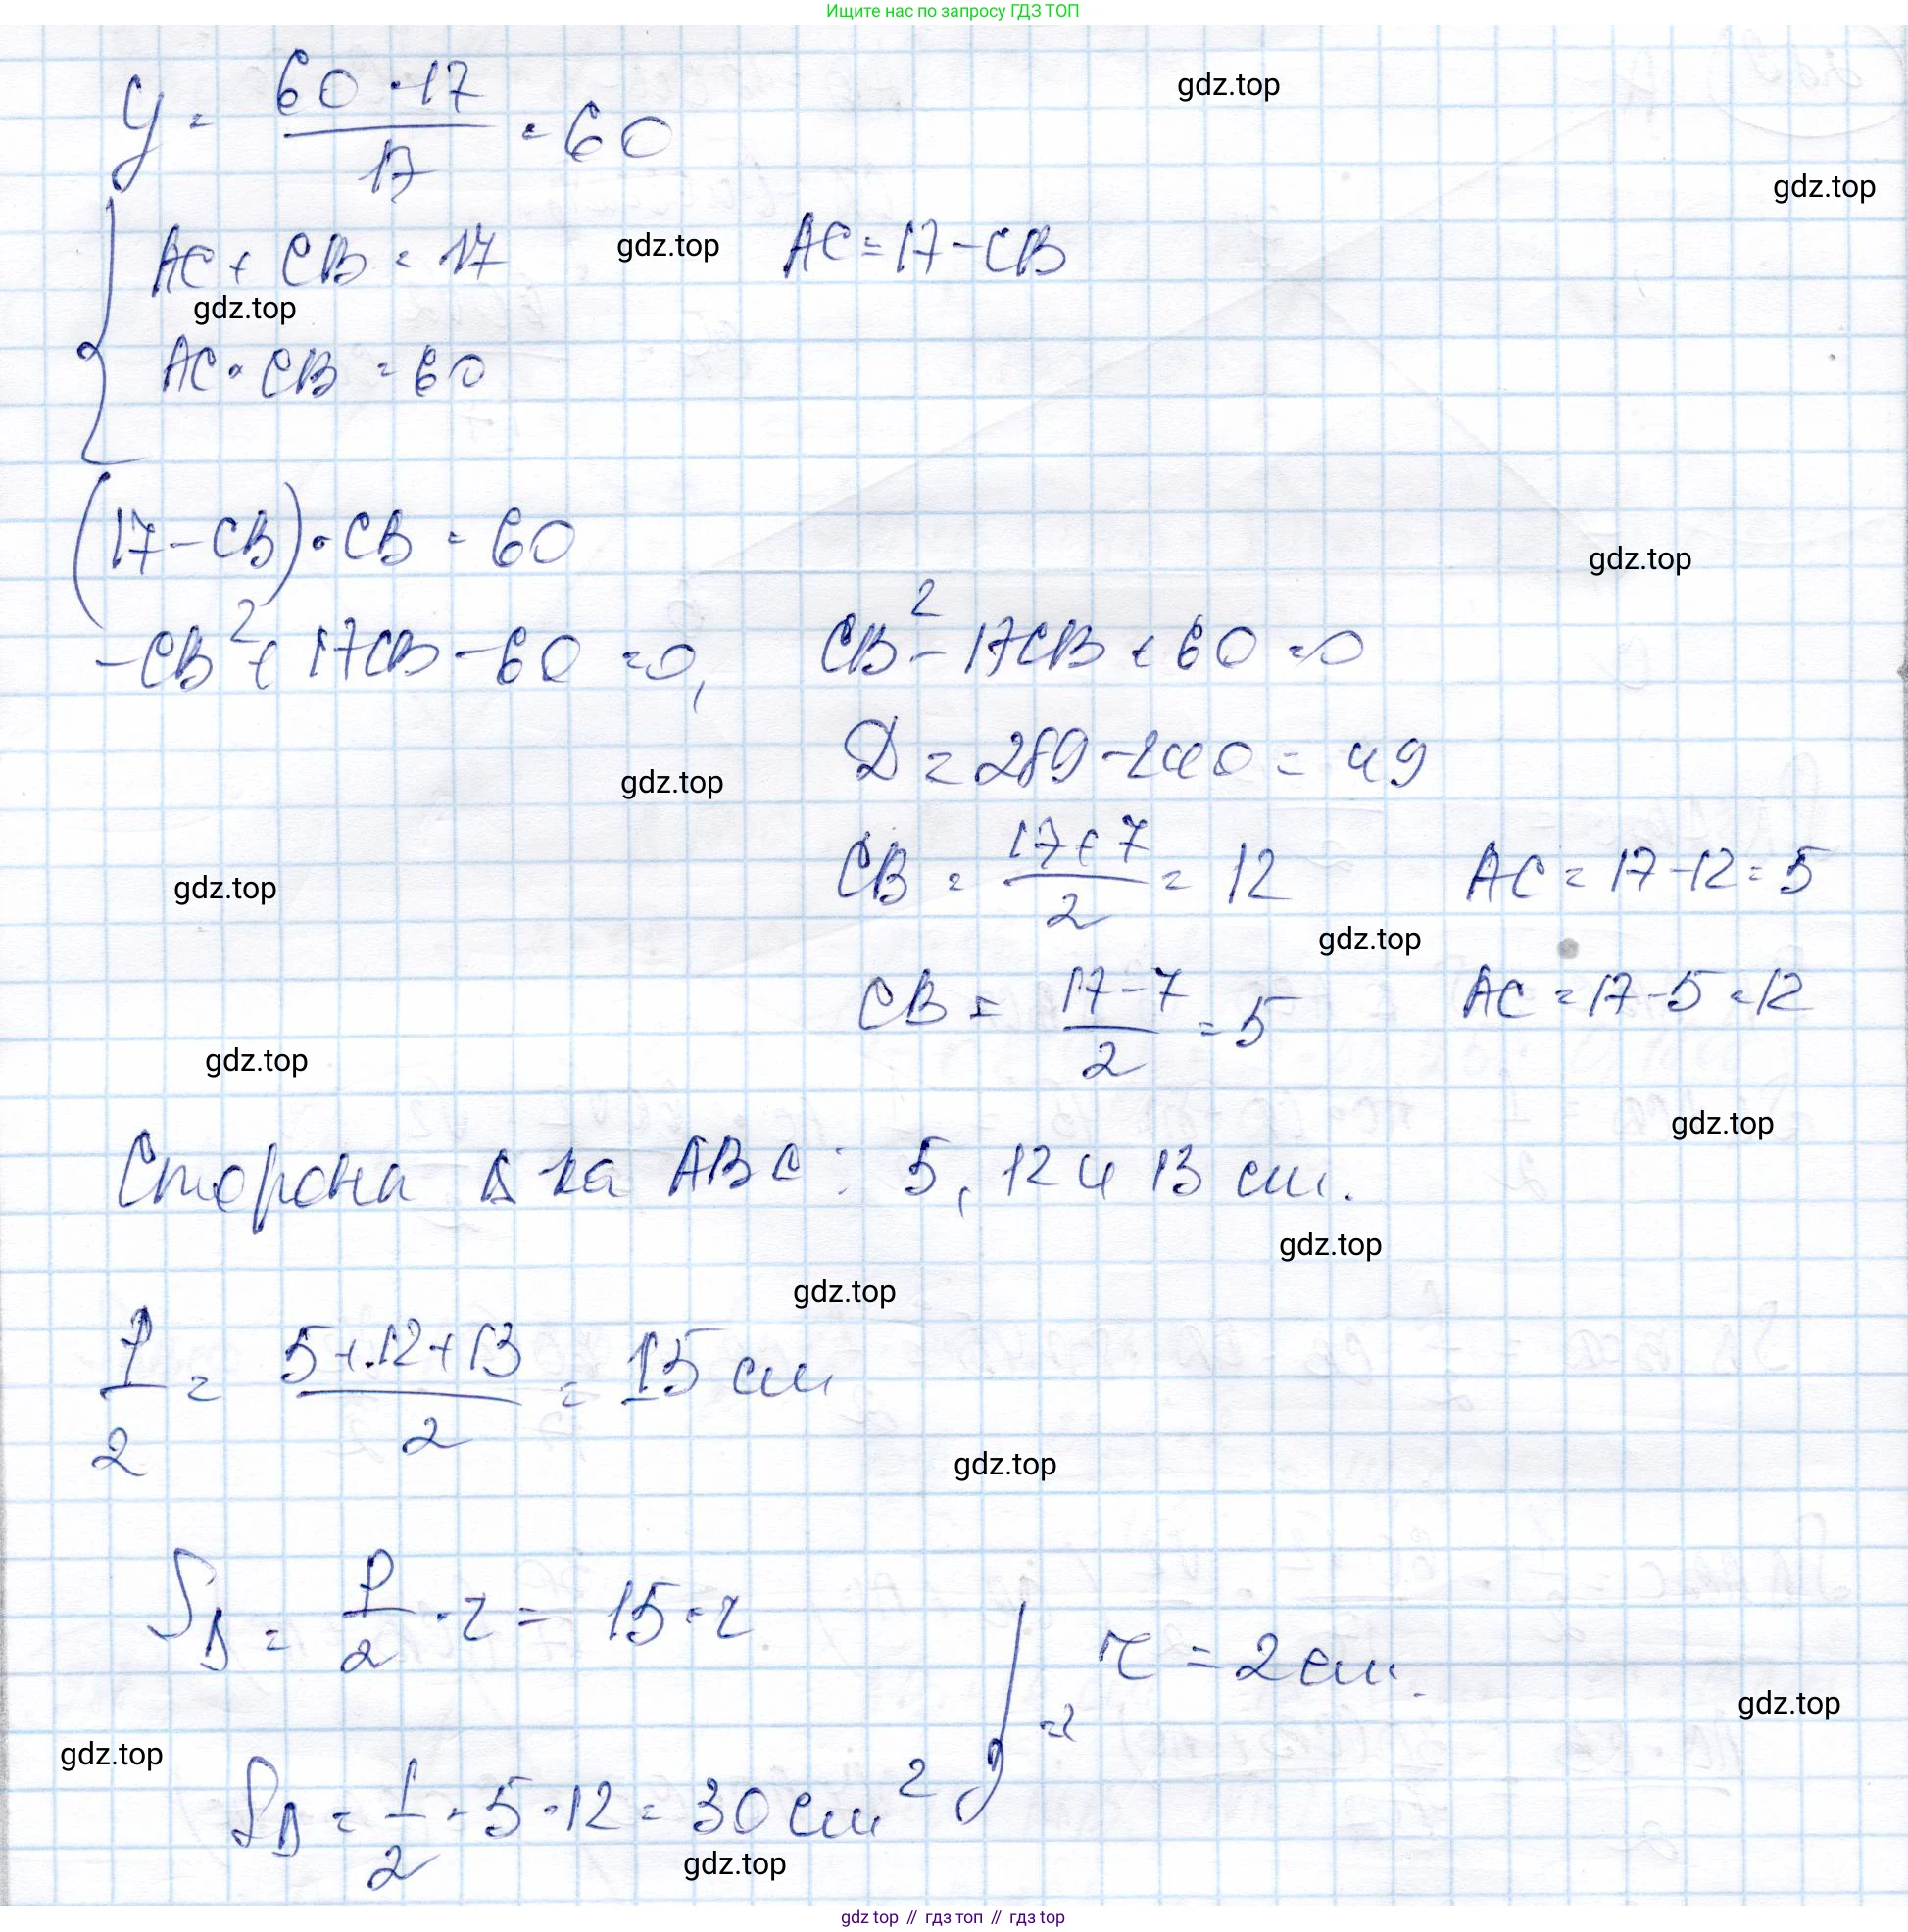 Ищите нас по запросу ГДЗ ТОП
y = 60 · 17 / 17 = 60
gdz.top
gdz.top
{ AC + CB = 17
gdz.top
AC = 17 - CB
gdz.top
AC · CB = 60
(17 - CB) · CB = 60
gdz.top
-CB² + 17CB - 60 = 0, CB² - 17CB + 60 = 0
gdz.top
D = 289 - 240 = 49
gdz.top
CB = 17 + 7 / 2 = 12 AC = 17 - 12 = 5
gdz.top
CB = 17 - 7 / 2 = 5 AC = 17 - 5 = 12
gdz.top
gdz.top
Сторона Δ-ка ABC: 5, 12 и 13 см.
gdz.top
gdz.top
P / 2 = 5 + 12 + 13 / 2 = 15 см
gdz.top
SΔ = P / 2 · r = 15 · r
} => r = 2 см.
gdz.top
gdz.top
SΔ = 1 / 2 · 5 · 12 = 30 см²
gdz.top
gdz top // гдз топ // гдз top